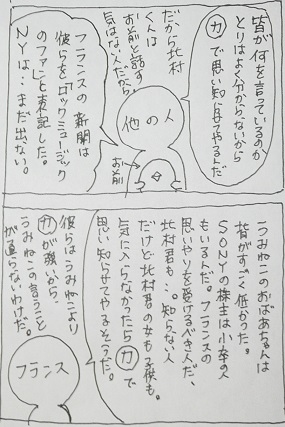 皆が何を言っているのか
とりはよく分からないから
力で思い知らせてやるんだ
だから北村
くんは
お前と話す
気はない人だから
他の人
お前
フランスの新聞は
彼らを「ロックミュージック
のファン」と表記した。
NYは…まだ出ない。
うみねこのおばあちゃんは
皆がすごく低かった。
SONYの株主は小卒の人
もいるんだ。フランスの
思いやりを受けるべき人だ、
北村君も…。知らない人
だけど北村君の女も子供も。
気に入らなかったら力で
思い知らせてやるそうだ。
彼らはうみねこより
力が強いから、
うみねこの言うこと
が通らないわけだ。
フランス